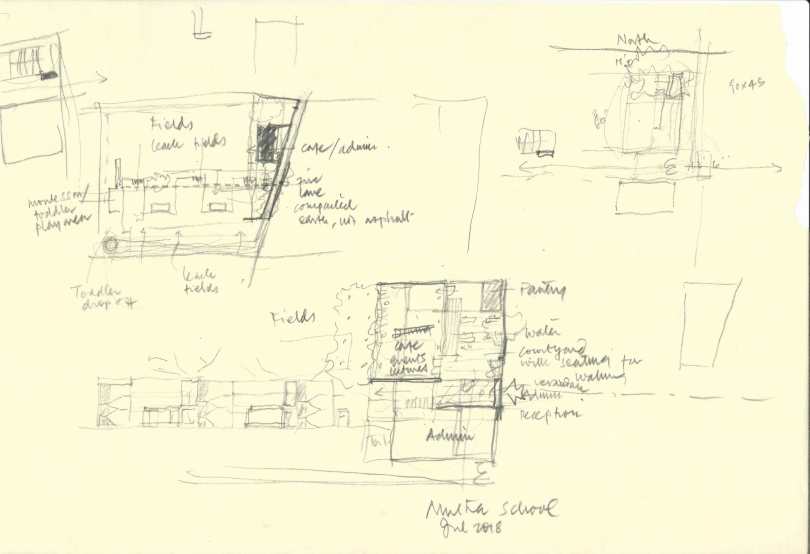 North
90x45
Fields
leach fields
cafe/admin
fire
lane
compacted
earth, no asphalt
montessori/
toddler
play area
Toddler
drop off
leach
fields
Fields
Pantry
cafe
events
lectures
water
courtyard
with seating for
waiting
Admin
reception
Admin
School
2018